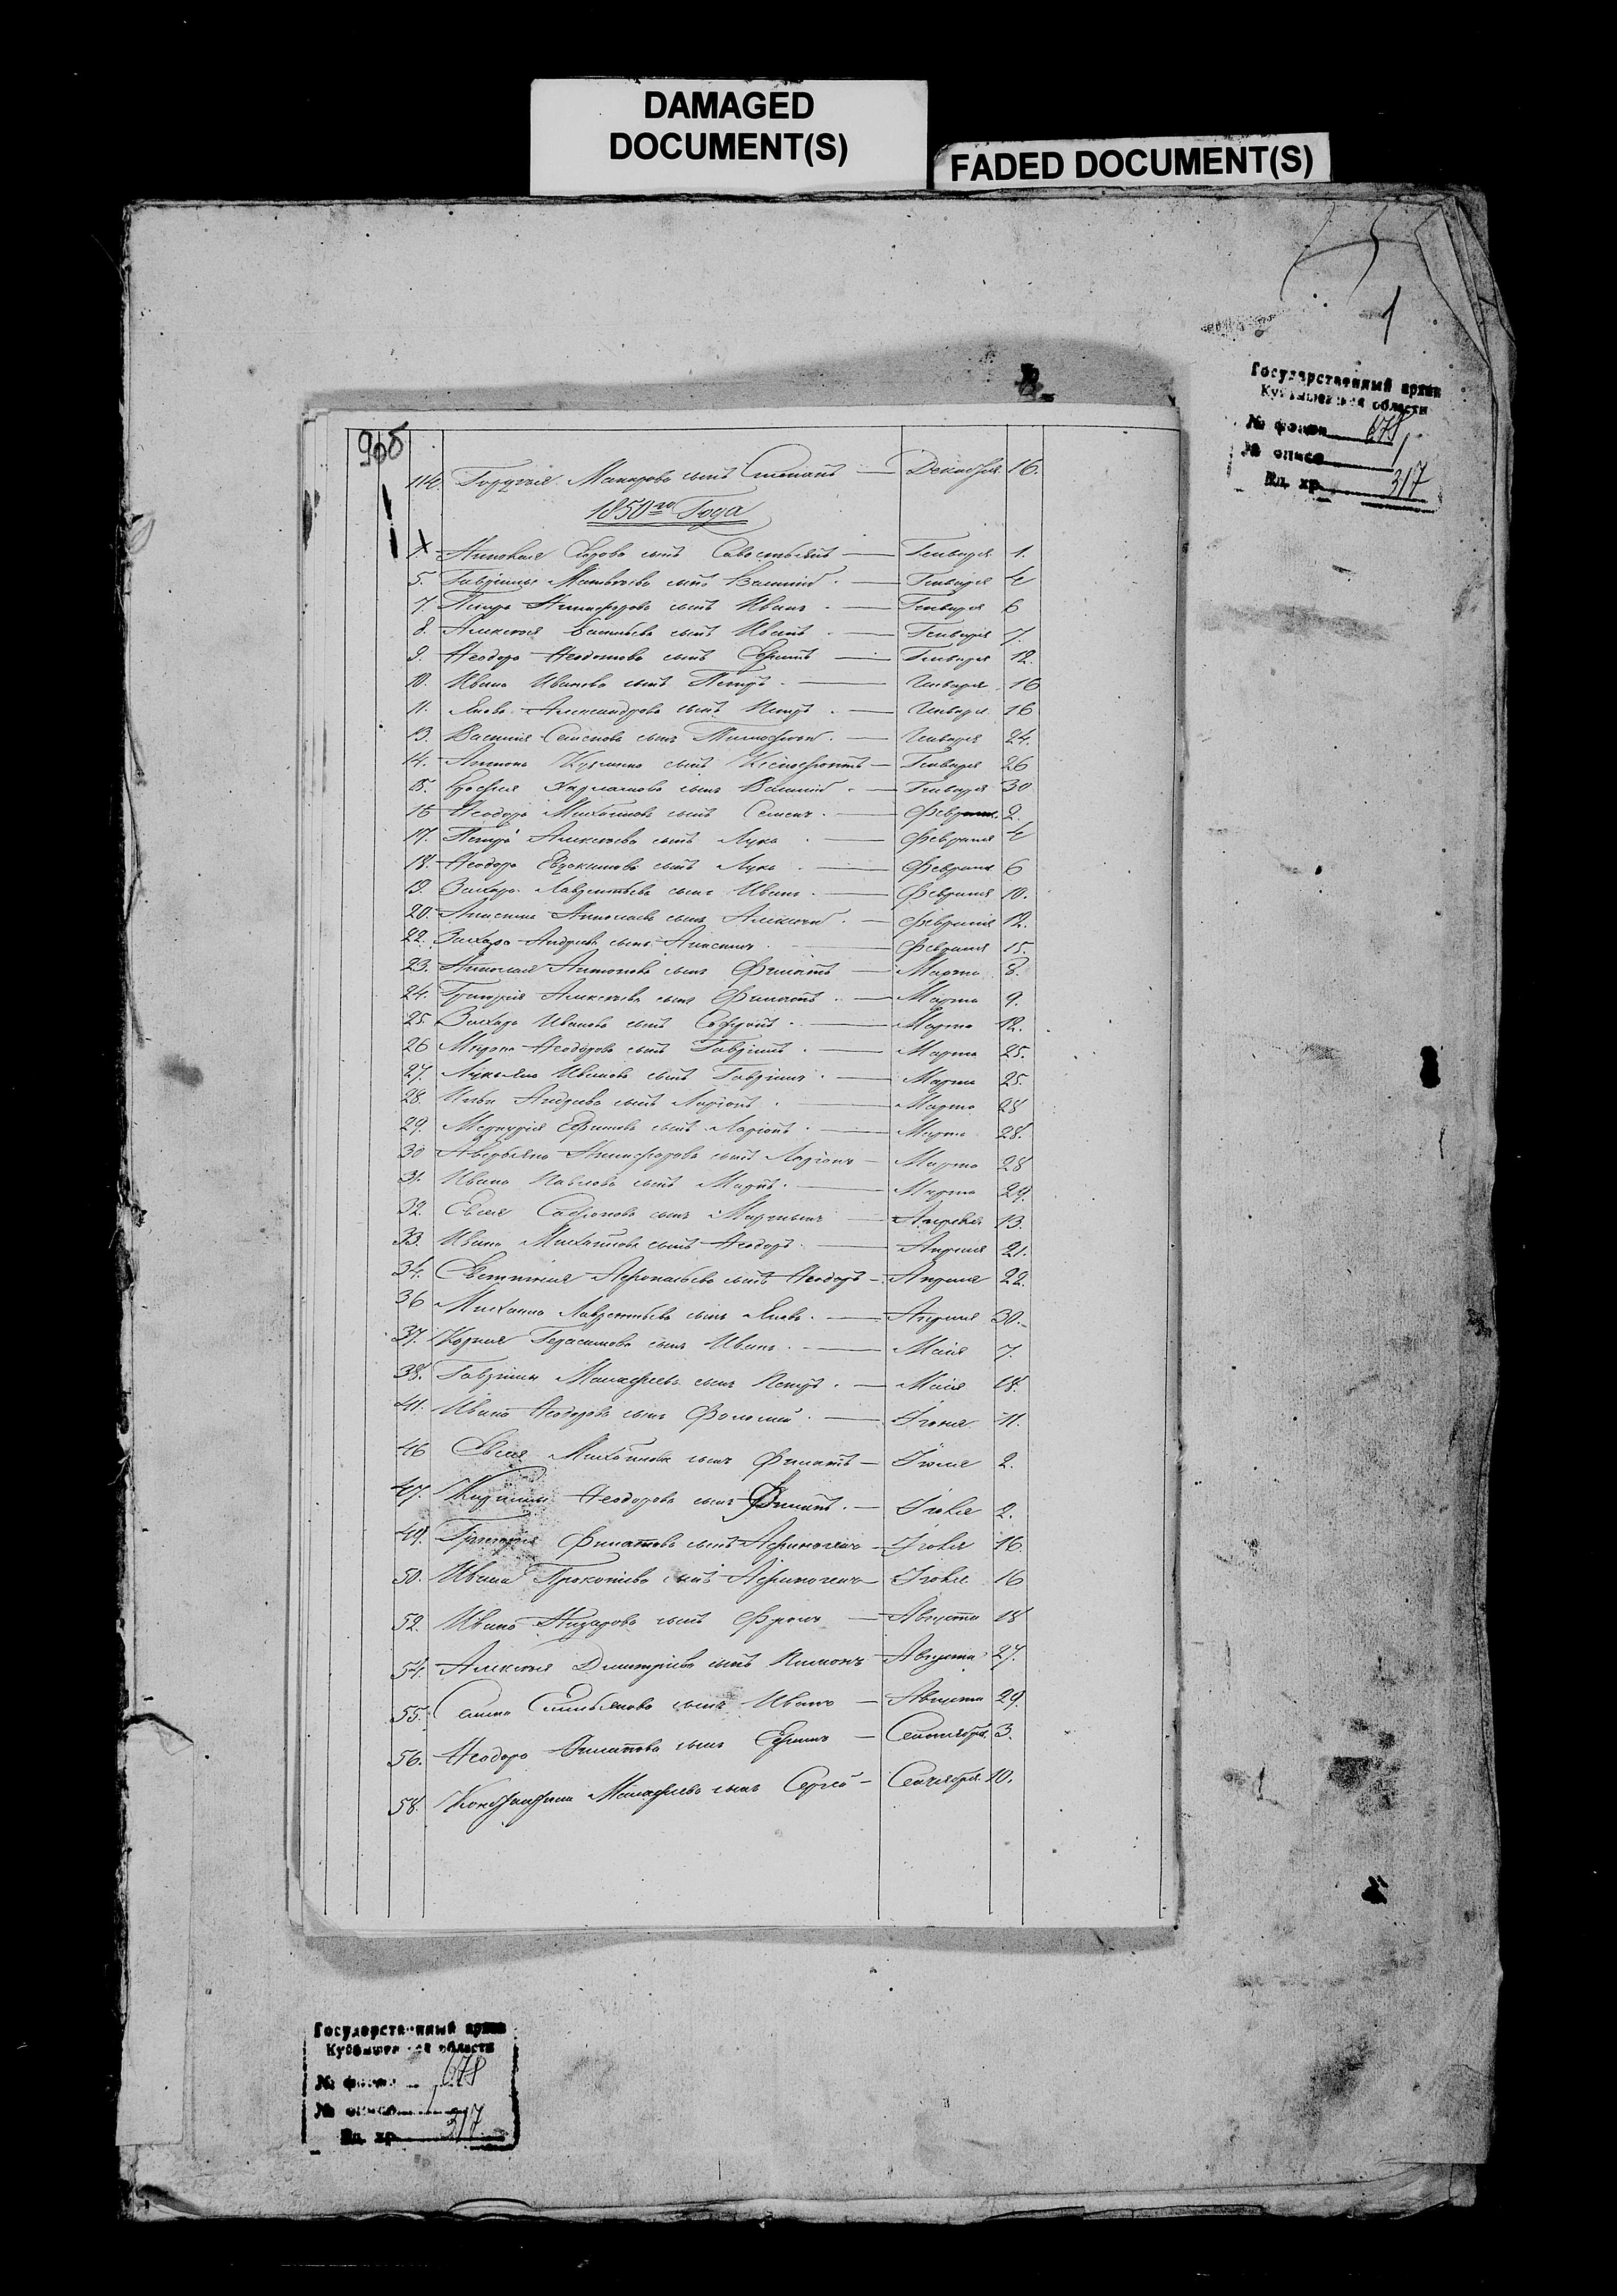 DAMAGED
DOCUMENT(S)
FADED DOCUMENT(S)
1
Государственный архив
Куйбышевская области
№ фонда 678
№ описи 1
Ед. хр. 317
906
114. Макарова сынъ Степанъ — Декабря 16.
1850го Года
1. Николая сынъ — Генваря 1.
5. Гаврилы Матвѣева сынъ Василій. — Генваря 4
7. Петра Никифорова сынъ Иванъ. — Генваря 6
8. Алексѣя Васильева сынъ Иванъ. — Генваря 7.
9. Ѳеодора Ѳедотова сынъ Ефимъ — Генваря 12.
10. Ивана Иванова сынъ Петръ. — Генваря 16
11. Якова Александрова сынъ Петръ. — Генваря 16
13. Василія Семенова сынъ Тимофей. — Генваря 24.
14. Антона Кузмина сынъ Ксенофонтъ — Генваря 26
15. Харламова сынъ Василій. — Генваря 30
16 Ѳеодора Михайлова сынъ Семенъ. — Февраля 2.
17. Петра Алексѣева сынъ Лука. — Февраля 4
18. Ѳеодора Евдокимова сынъ Лука. — Февраля 6
19. Захара Лаврентьева сынъ Иванъ. — Февраля 10.
20. Николаева сынъ Алексѣй. — Февраля 12.
22. Захара Андреева сынъ — Февраля 15.
23. Николая Антонова сынъ Филатъ — Марта 8.
24. Григорія Алексѣева сынъ Филатъ. — Марта 9.
25. Захара Иванова сынъ — Марта 12.
26 Мирона Ѳеодорова сынъ Гаврилъ. — Марта 25.
27. Лукьяна Иванова сынъ Гаврилъ. — Марта 25.
28. Ильи Андреева сынъ Ларіонъ. — Марта 28
29. Меркурія Ефимова сынъ Ларіонъ. — Марта 28.
30 Аверьяна Никифорова сынъ Ларіонъ — Марта 28
31. Ивана Павлова сынъ Маркъ. — Марта 29.
32. Евсея Сафронова сынъ Мартынъ — Апреля 13.
33. Ивана Михайлова сынъ Ѳеодоръ. — Апреля 21.
34. Афонасьева сынъ Ѳеодоръ — Апреля 22.
36 Михаила Лаврентьева сынъ Яковъ. — Апреля 30.
37. Герасимова сынъ Иванъ. — Маія 7.
38. Гаврилы сынъ Петръ. — Маія 18.
41. Ивана Ѳеодорова сынъ — Іюня 11.
46 Евсея Михайлова сынъ Филатъ — Іюля 2.
47. Ѳеодорова сынъ — Іюля 2.
49. Григорія Филатова сынъ Афиногенъ — Іюля 16
50. Ивана Прокопьева сынъ Афиногенъ — Іюля 16
52. Ивана Назарова сынъ Фролъ — Августа 18
54. Алексѣя Дмитріева сынъ Пименъ — Августа 27.
55. сынъ Иванъ — Августа 29.
56. Ѳеодора Филатова сынъ Ефимъ — Сентября 3.
58. Константина сынъ Сергѣй — Сентября 10.
Государственный архив
Куйбышевская области
№ фонда 678
№ описи 1
Ед. хр. 317